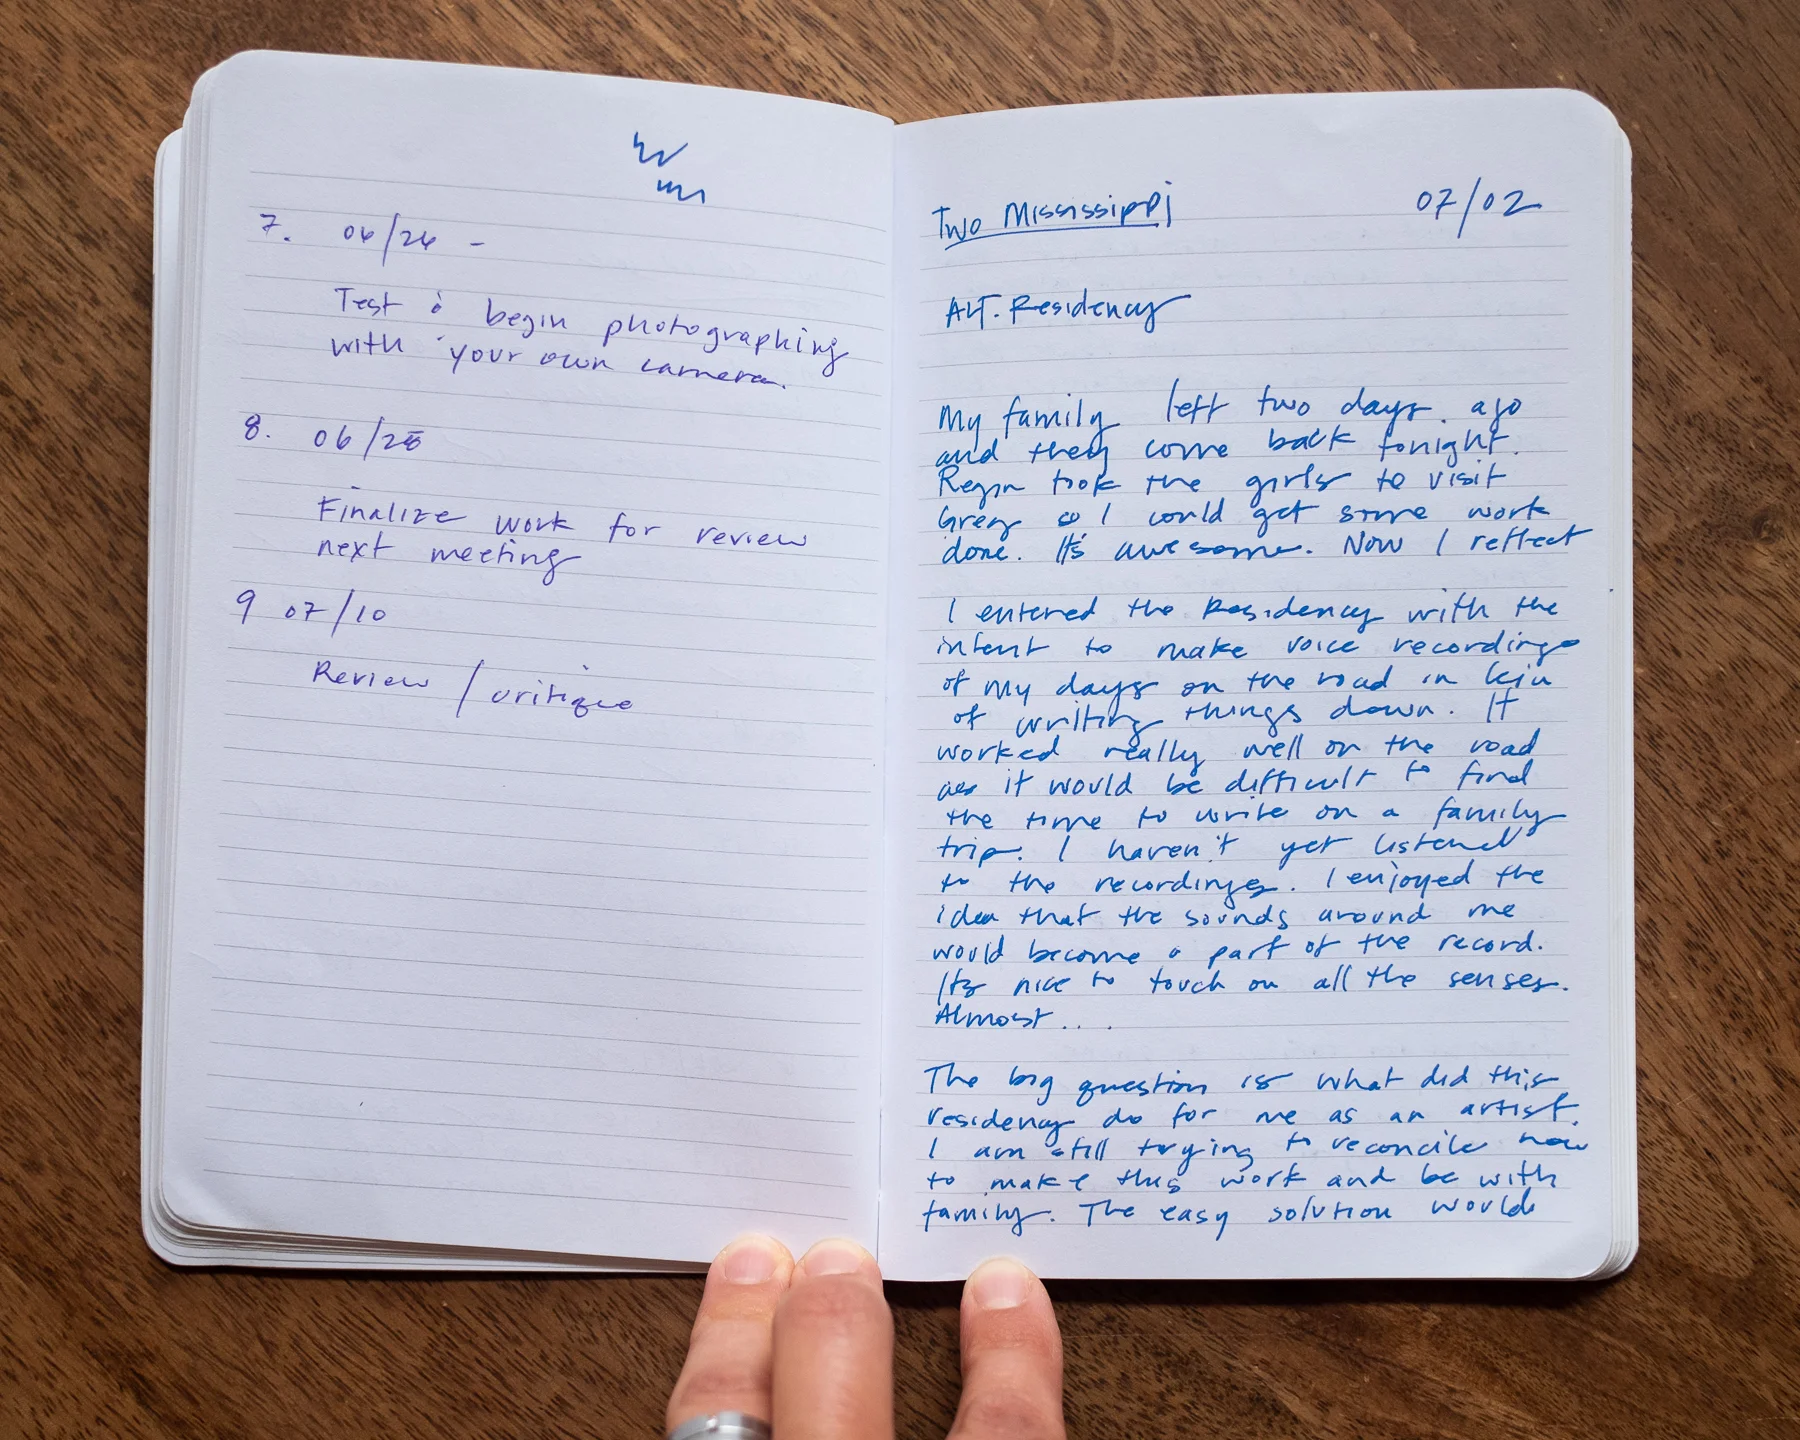 7. 06/26 -
Test & begin photographing
with your own camera.
8. 06/28
Finalize work for review
next meeting
9 07/10
Review / critique
Two Mississippi 07/02
Alt. Residency
My family left two days ago
and they come back tonight.
took the girls to visit
so I could get some work
done. It's awesome. Now I reflect
I entered the Residency with the
intent to make voice recordings
of my days on the road in lieu
of writing things down. It
worked really well on the road
as it would be difficult to find
the time to write on a family
trip. I haven't yet listened
to the recordings. I enjoyed the
idea that the sounds around me
would become a part of the record.
Its nice to touch on all the senses.
Almost...
The big question is what did this
residency do for me as an artist.
I am still trying to reconcile how
to make this work and be with
family. The easy solution would